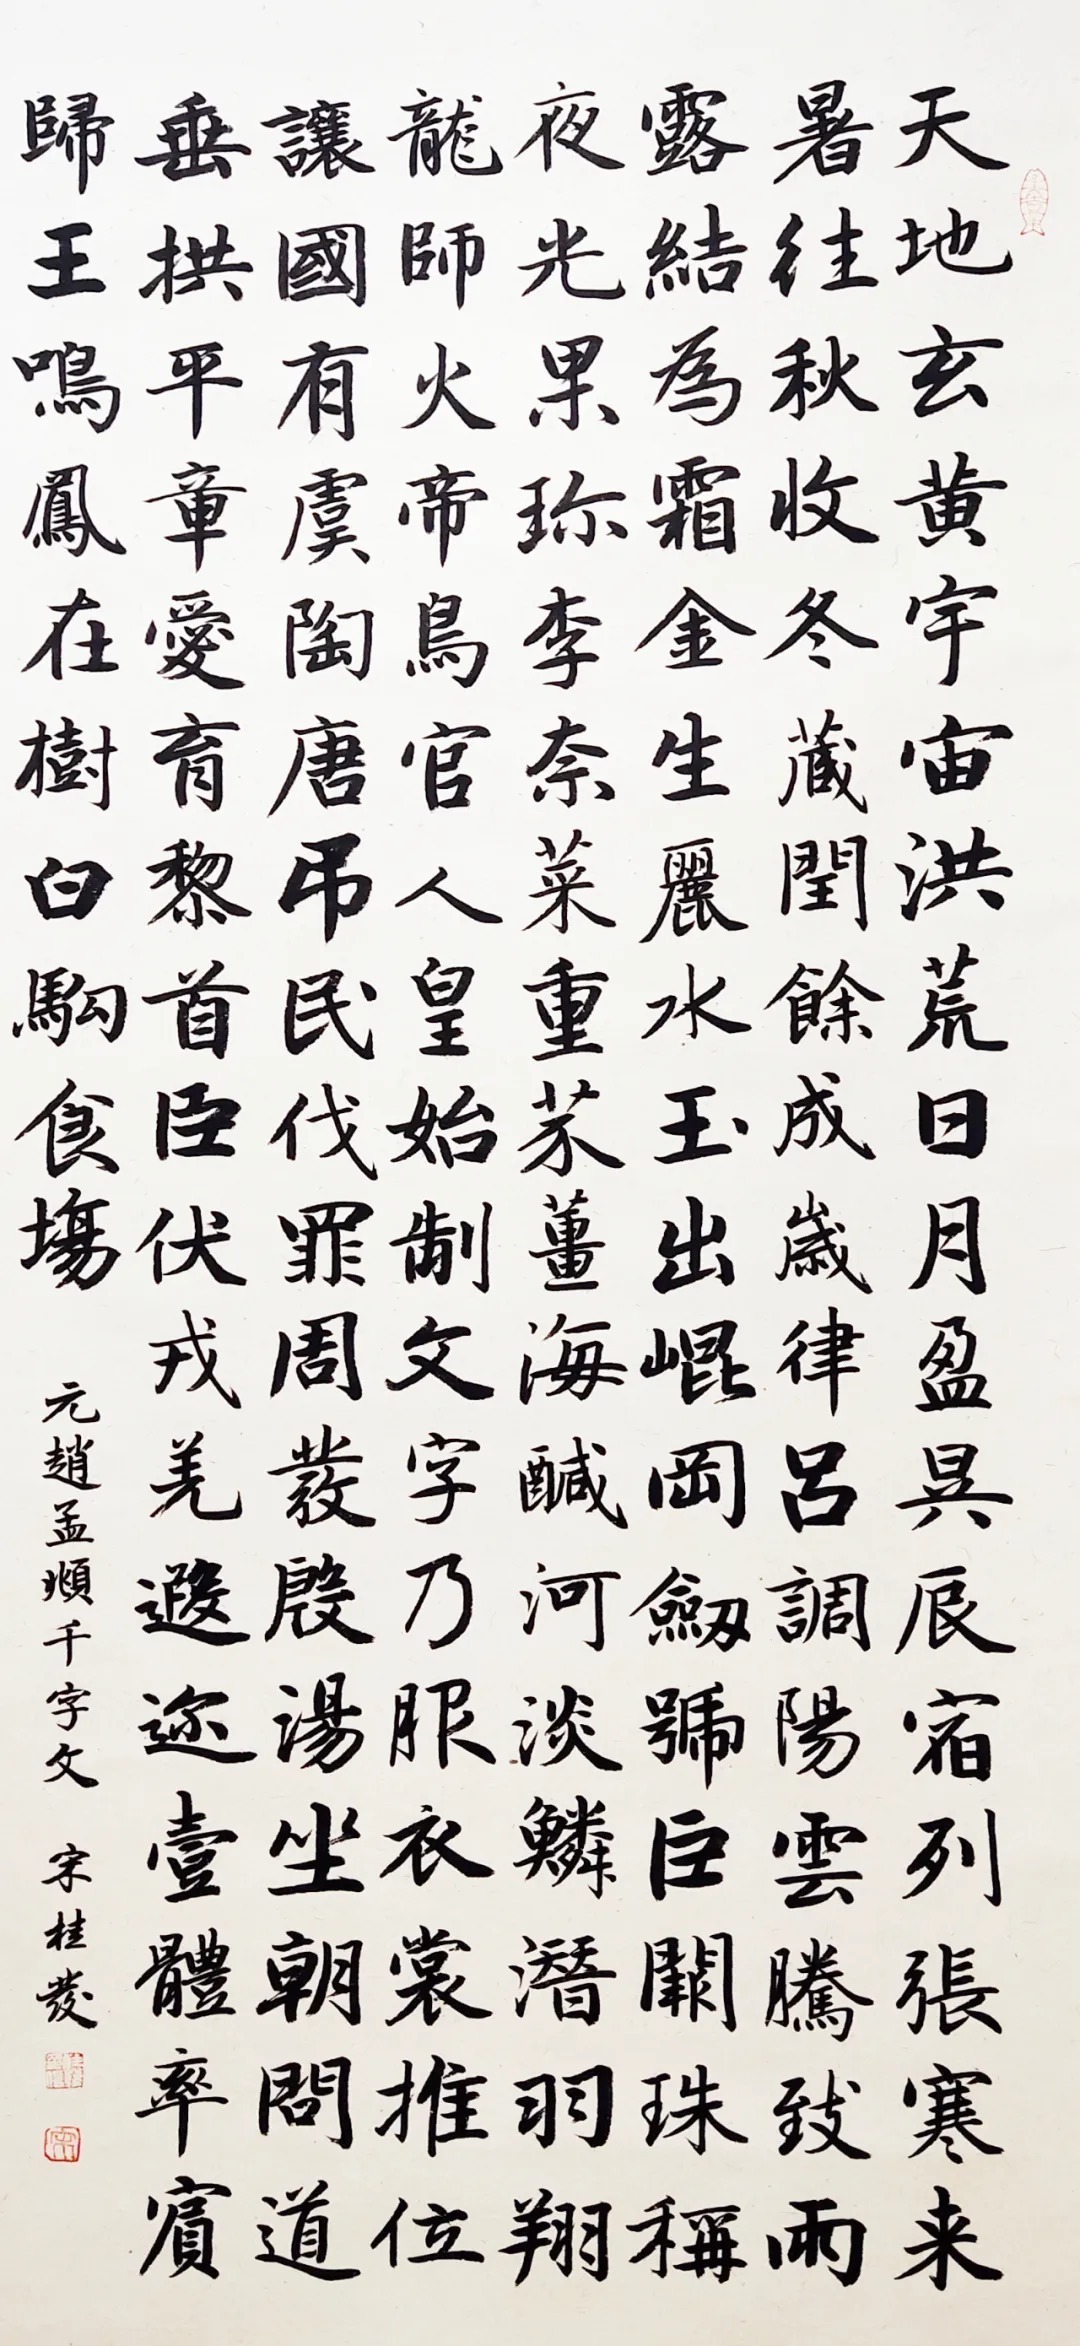 天地玄黄宇宙洪荒日月盈昃辰宿列張寒来
暑往秋收冬藏閏餘成歲律呂調陽雲騰致雨
露結為霜金生麗水玉出崐岡劒號巨闕珠稱
夜光果珎李奈菜重芥薑海醎河淡鱗潛羽翔
龍師火帝鳥官人皇始制文字乃服衣裳推位
讓國有虞陶唐吊民伐罪周發殷湯坐朝問道
垂拱平章愛育黎首臣伏戎羌遐迩壹體率賓
歸王鳴鳳在樹白駒食塲
元趙孟頫千字文 宋桂發